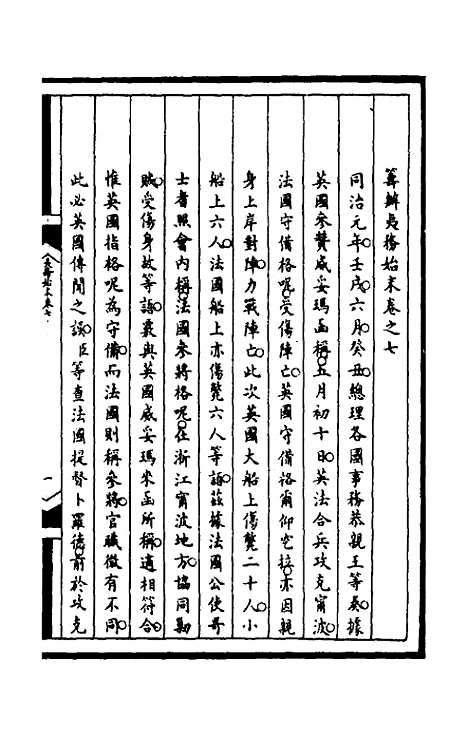 籌辦夷務始末卷之七
同治元年壬戌六月癸丑總理各國事務恭親王等奏據
英國參贊威妥瑪函稱五月初十日英法合兵攻克甯波
法國守備格呢受傷陣亡英國守備格爾仰宅拉亦因親
身上岸對陣力戰陣亡此次英國大船上傷斃二十人小
船上六人法國船上亦傷斃六人等語茲據法國公使哥
士耆照會內稱法國參將格呢在浙江甯波地方協同勦
賊受傷身故等語覈與英國威妥瑪來函所稱適相符合
惟英國指格呢為守備而法國則稱參將官職微有不同
此必英國傳聞之誤臣等查法國提督卜羅德前於攻克